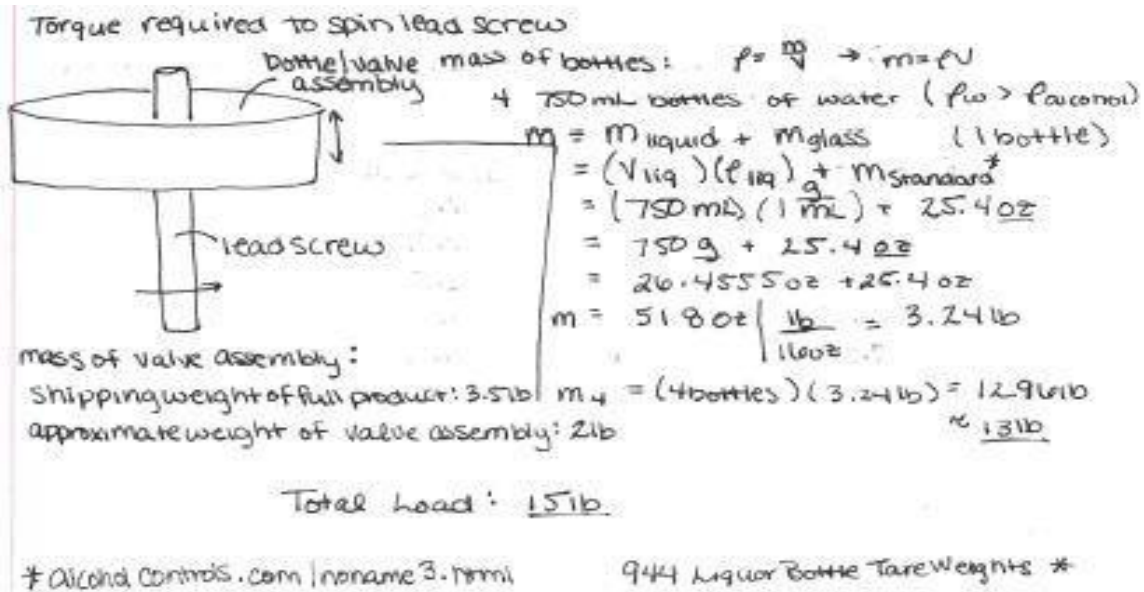 Torque required to spin lead screw
bottle/valve assembly
lead screw
mass of bottles: ρ = m/V → m = ρV
4 750 mL bottles of water (ρw > ρalcohol)
m = mliquid + mglass (1 bottle)
= (Vliq)(ρliq) + mstandard*
= (750 mL)(1 g/mL) + 25.4 oz
= 750 g + 25.4 oz
= 26.4555 oz + 25.4 oz
m = 51.8 oz | lb/16oz = 3.24 lb
m4 = (4 bottles)(3.24 lb) = 12.96 lb
≈ 13 lb
mass of valve assembly:
shipping weight of full product: 3.5 lb
approximate weight of valve assembly: 2 lb
Total Load: 15 lb
* alcohol controls.com/noname3.html
944 Liquor Bottle Tare Weights *